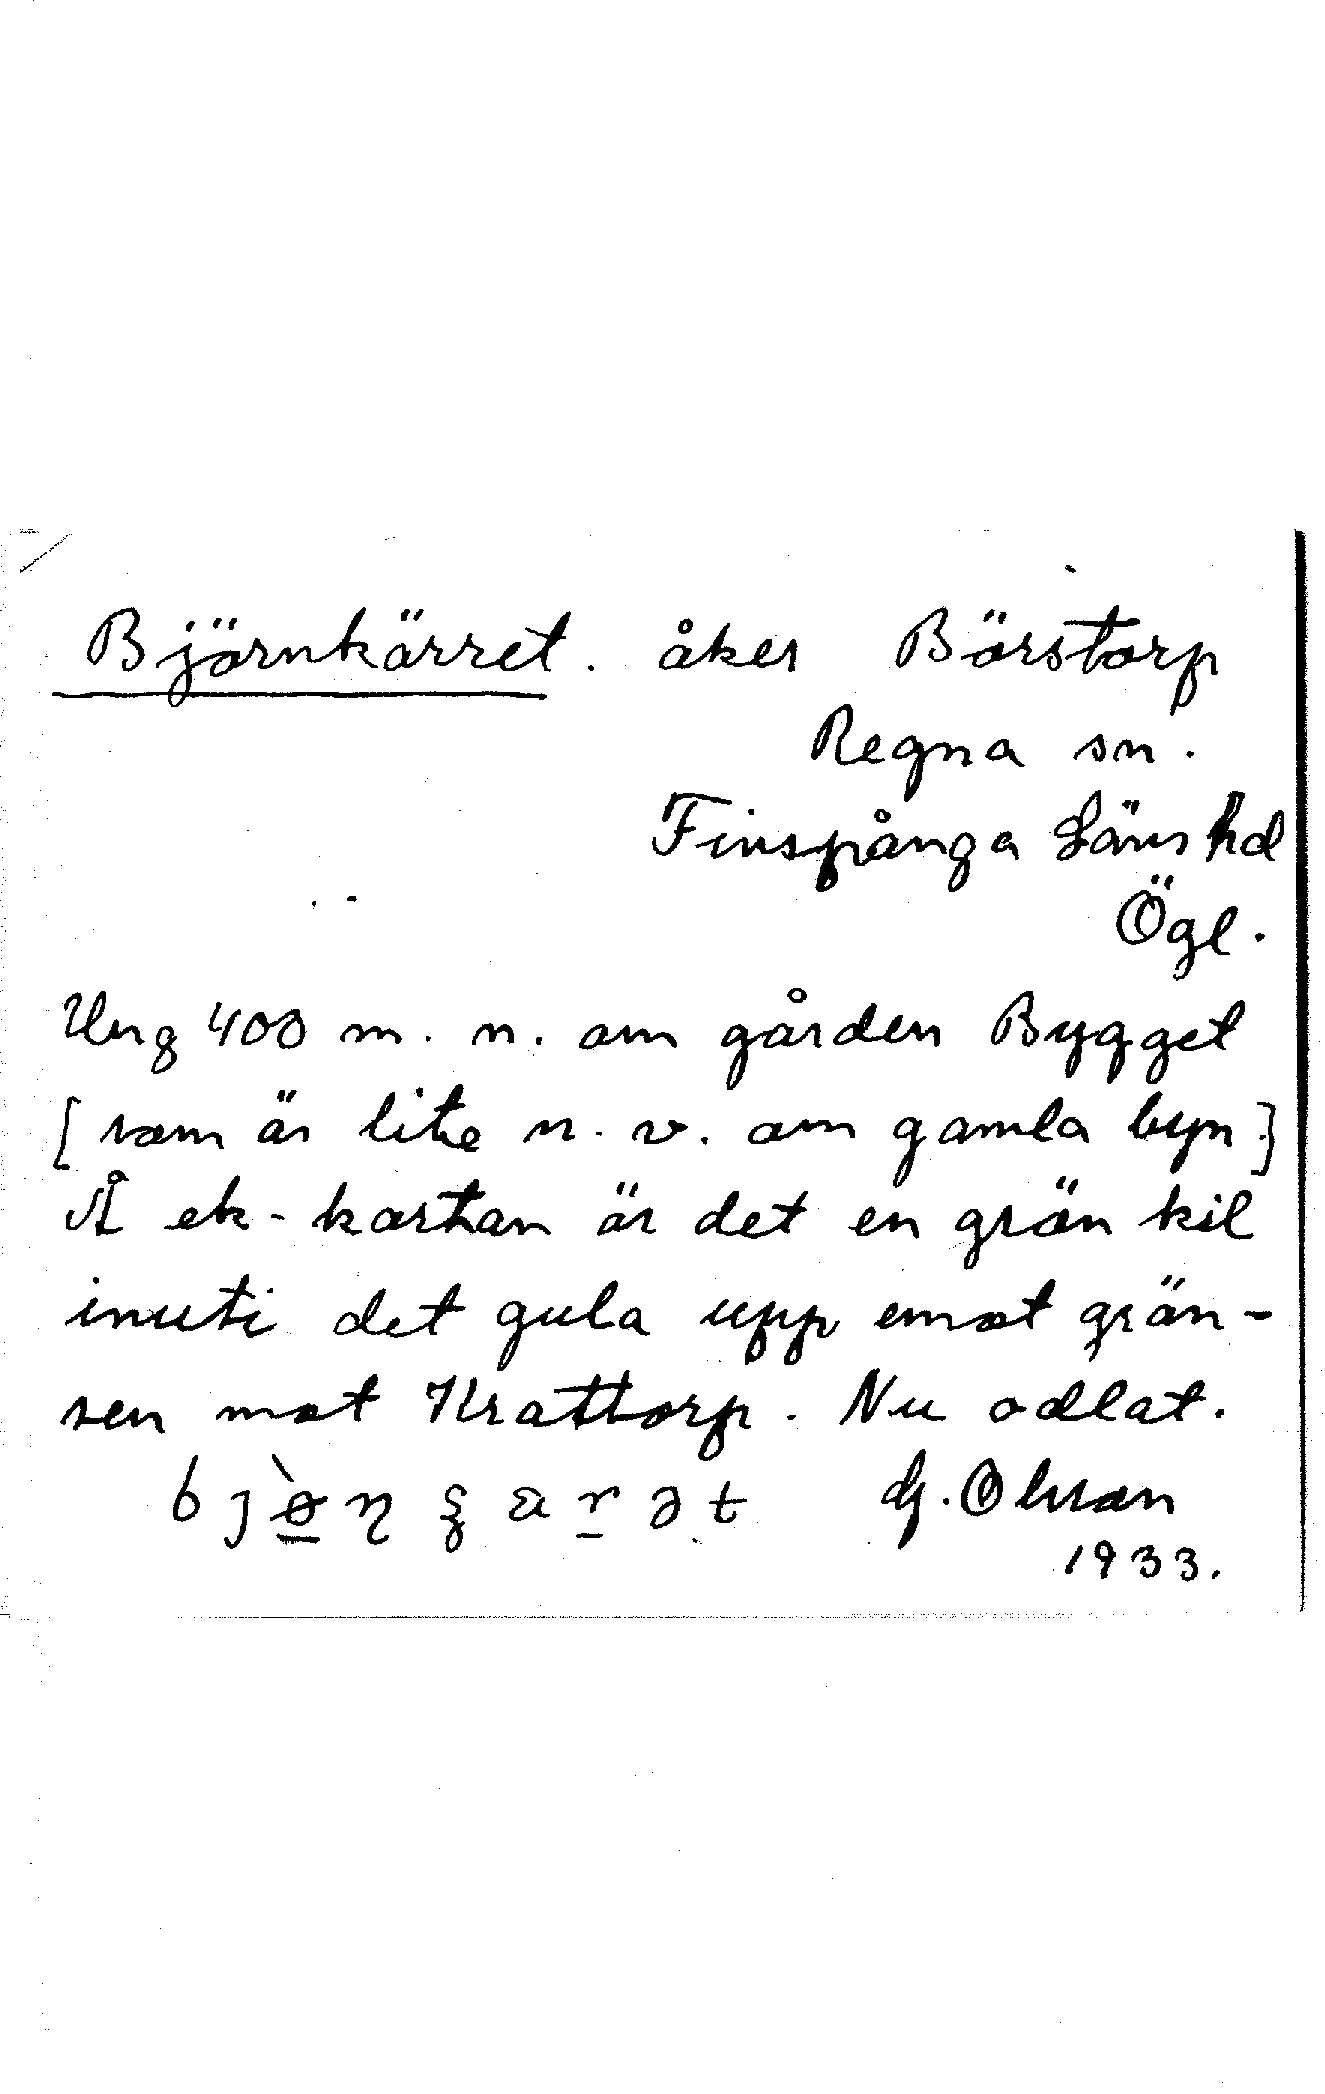 Björnkärret. åker Börstorp
Regna sn.
Finspånga Läns hd
Ögl.
Ung 400 m. n. om gården Bygget
[som är lite n. v. om gamla byn.]
Å ek-kartan är det en grön kil
inuti det gula upp emot grän-
sen mot Krattorp. Nu odlat.
G. Olsson
1933.